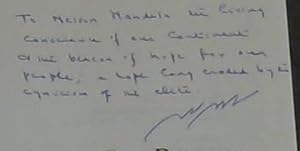 To Nelson Mandela the living
conscience of our Continent
& the beacon of hope for our
people, a hope long eroded by the
cynicism of the elite.